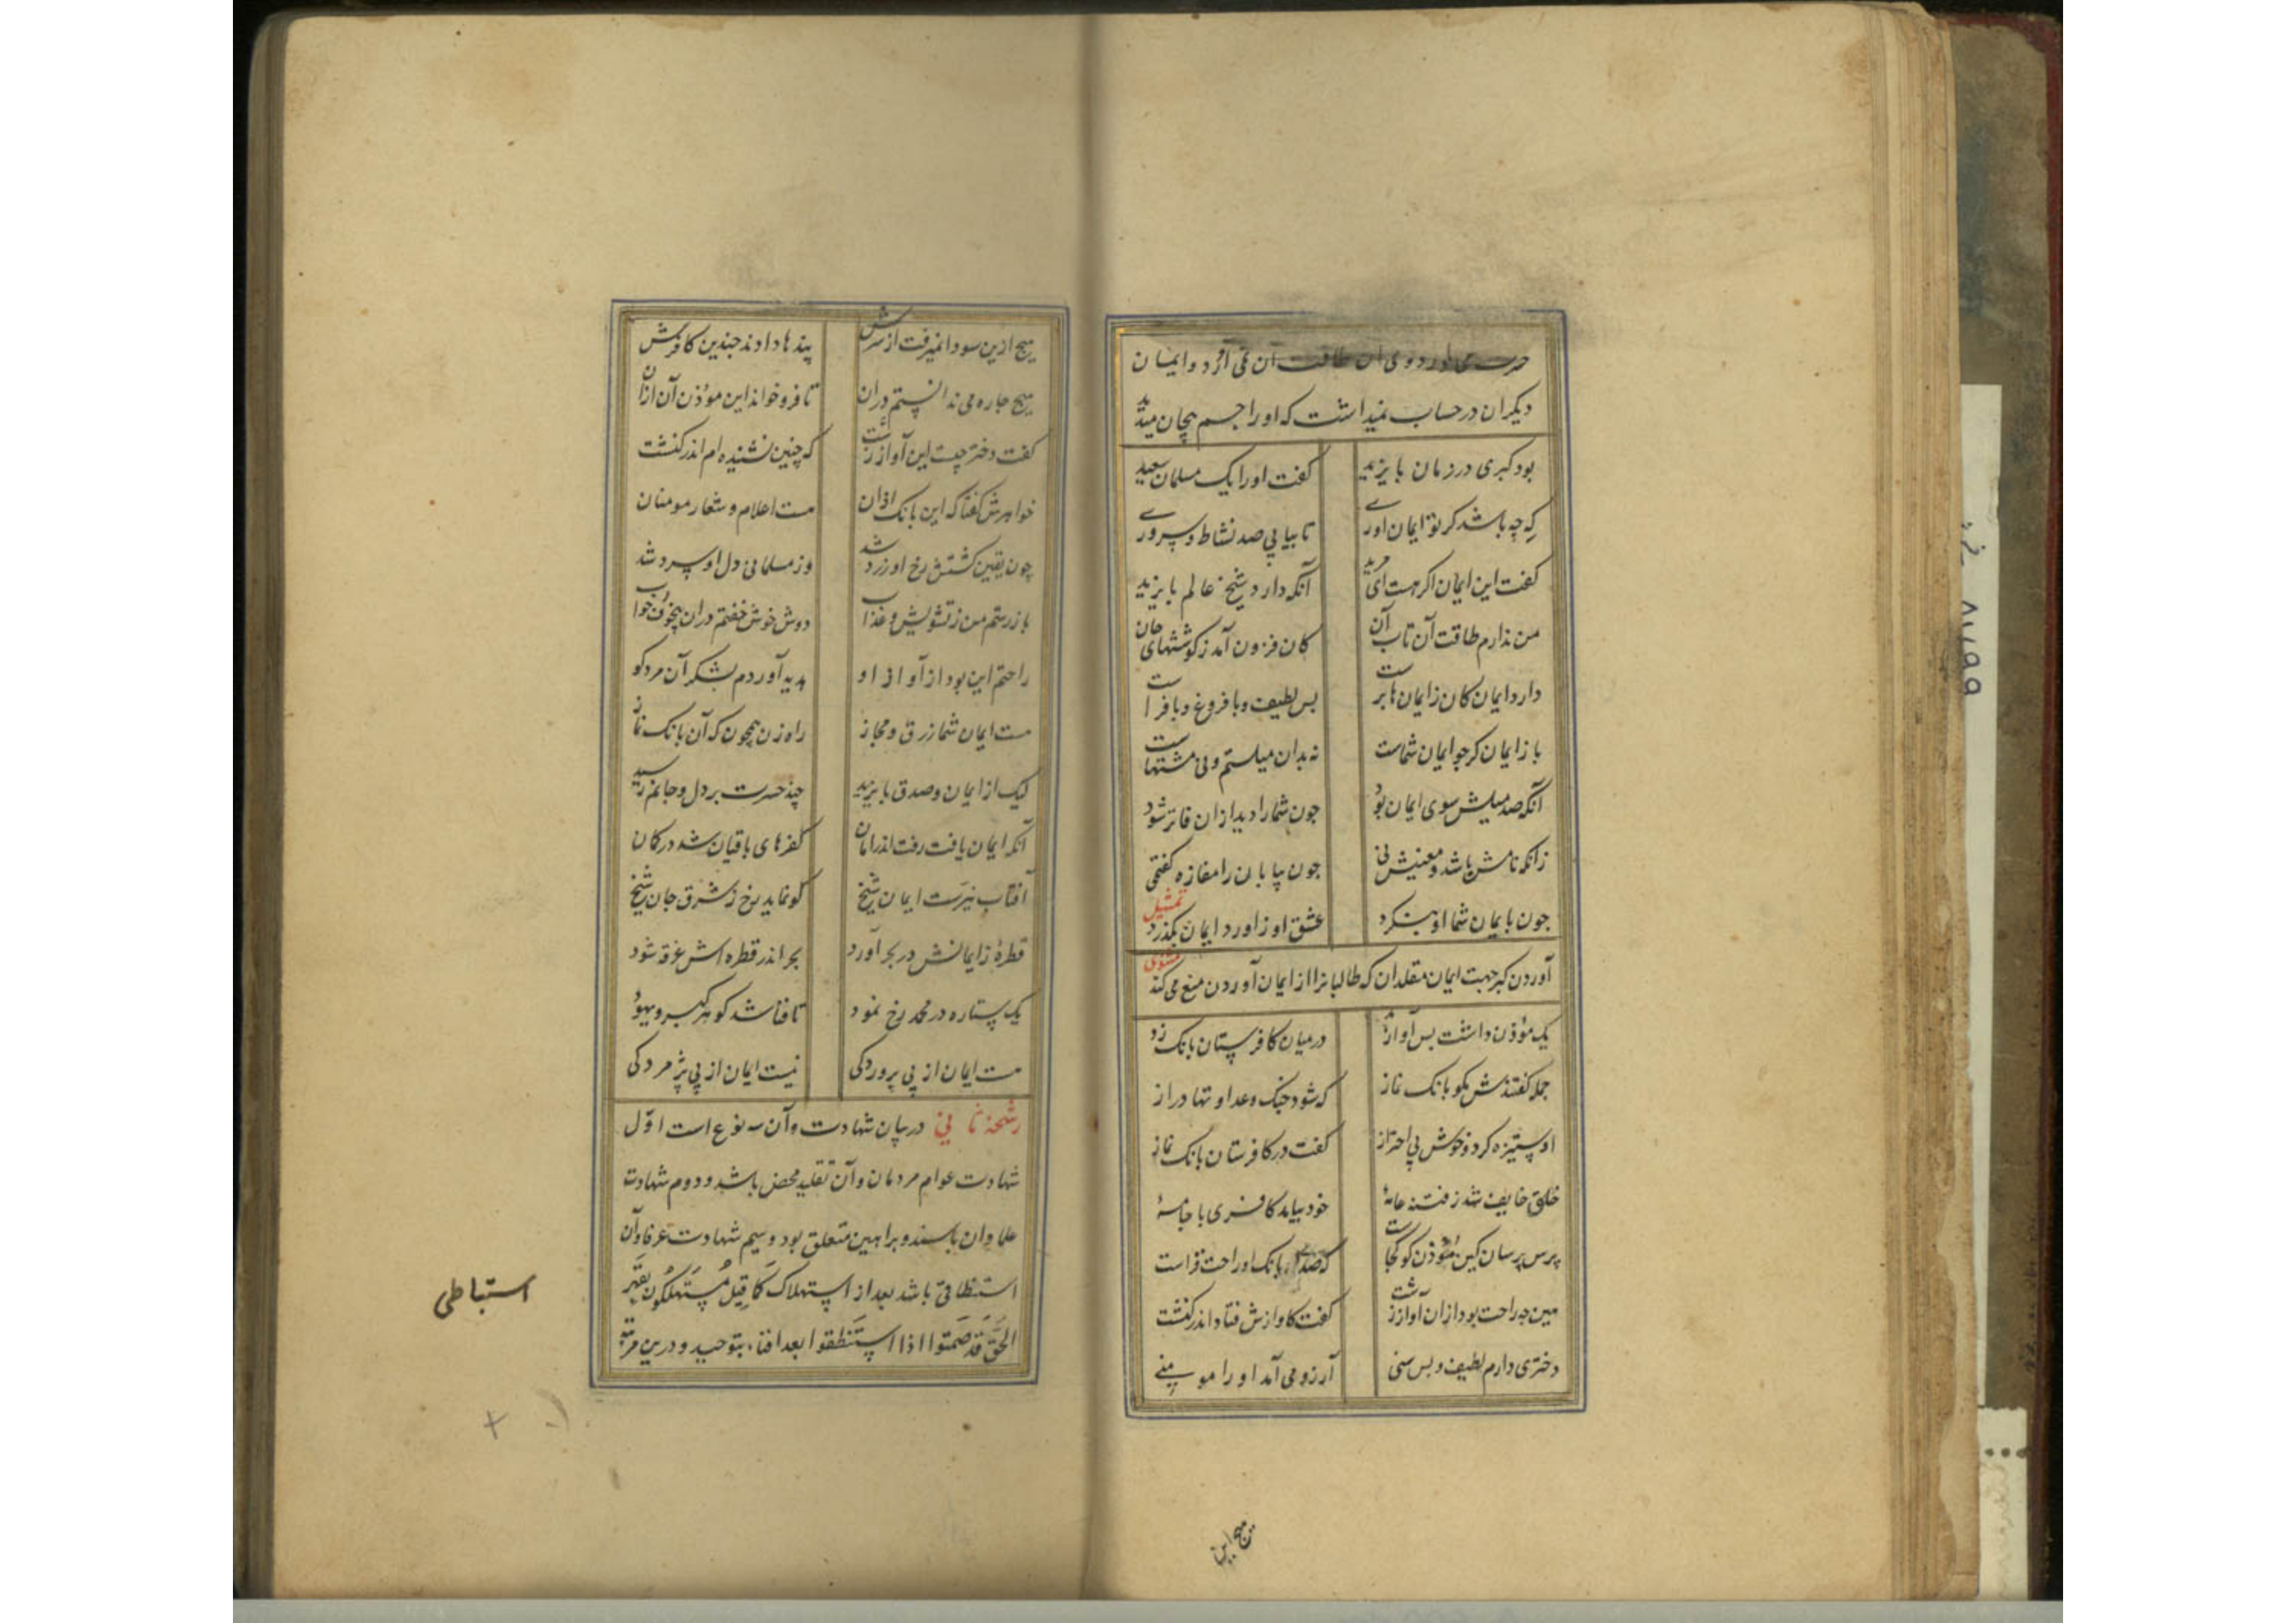 حسرت می آورد و وی آن طاقت آن نمی آرد و ایمان
دیکران در حساب نمیداشت که او را جسم بیجان میدید
بود کبری در زمان بایزید کفت او را یک مسلمان سعید
که چه باشد کر تو ایمان آوری تا بیابی صد نشاط و سروری
کفت این ایمان اکر هست ای مرید آنکه دارد شیخ عالم بایزید
من ندارم طاقت آن تاب آن کان فزون آمد ز کوششهای جان
دارد ایمان کان ز ایمان ها برست بس لطیف و با فروغ و با فراست
باز ایمان کر چو ایمان شماست نه بدان میلستم و نی مشتهاست
آنکه صد میلش سوی ایمان بود جون شما را دید ازان فاتر شود
زانکه نامش باشد و معنیش نی جون بیابان را مفازه کفتی
تمثیل
جون بایمان شما او بنکرد عشق او زاورد ایمان بکذرد
مثنوی
آوردن کبر جهت ایمان مقلدان که طالبانرا از ایمان آوردن منع می کند
یک موذن داشت بس آواز بد درمیان کافرستان بانک زد
جمله کفتندش مکو بانک نماز که شود جنک و عداوتها دراز
او ستیزه کرد و خوش بی احتراز کفت در کافرستان بانک نماز
خلق خایف شد ز فتنه عامهٔ خود بیامد کافری با جامهٔ
پرس پرسان کین موذن کو کجاست که صدای بانک او راحت فزاست
هین چه راحت بود ازان آواز زشت کفت کاوازش فتاد اندر کنشت
دختری دارم لطیف و بس سنی آرزو می آمد او را مومنی
هیچ ازین سودا نمیرفت از سرش پندها دادند جندین کافرش
هیچ جاره می ندانستم دران تا فرو خواند این موذن آن اذان
کفت دختر چیست این آواز زشت که چنین نشنیده ام اندر کنشت
خواهرش کفتا که این بانک اذان هست اعلام و شعار مومنان
چون یقین کشتش رخ او زرد شد وز مسلمانی دل او سرد شد
باز رستم من ز تشویش و عذاب دوش خوش خفتم دران بیخوف خواب
راحتم این بود از آواز او هدیه آوردم بشکر آن مرد کو
هست ایمان شما زرق و مجاز راه زن همچون که آن بانک نماز
لیک از ایمان و صدق بایزید چند حسرت بر دل و جانم رسید
آنکه ایمان یافت رفت اندر امان کفرهای باقیان شد در کان
آفتاب نیرست ایمان شیخ کو نماید رخ ز شرق جان شیخ
قطرهٔ ز ایمانش در بحر آورد بحر اندر قطره اش غرقه شود
یک ستاره در محمد رخ نمود تا فنا شد کوهر کبر و یهود
هست ایمان از پی پروردکی نیست ایمان از پی پژمردکی
رشحهٔ ثانی در بیان شهادت و آن سه نوع است اول
شهادت عوام مردمان و آن تقلید محض باشد و دوم شهادت
علما و آن با سند و براهین متعلق بود و سیم شهادت عرفا و آن
استنطاقی باشد بعد از استهلاک کَمَا قِیلَ مُستَهلَکُون بقهر
الحَقّ قَد صَمَتُوا اذا استَنطَقوا بعد افناء بتوحید و درین مرتبه
استنباطی